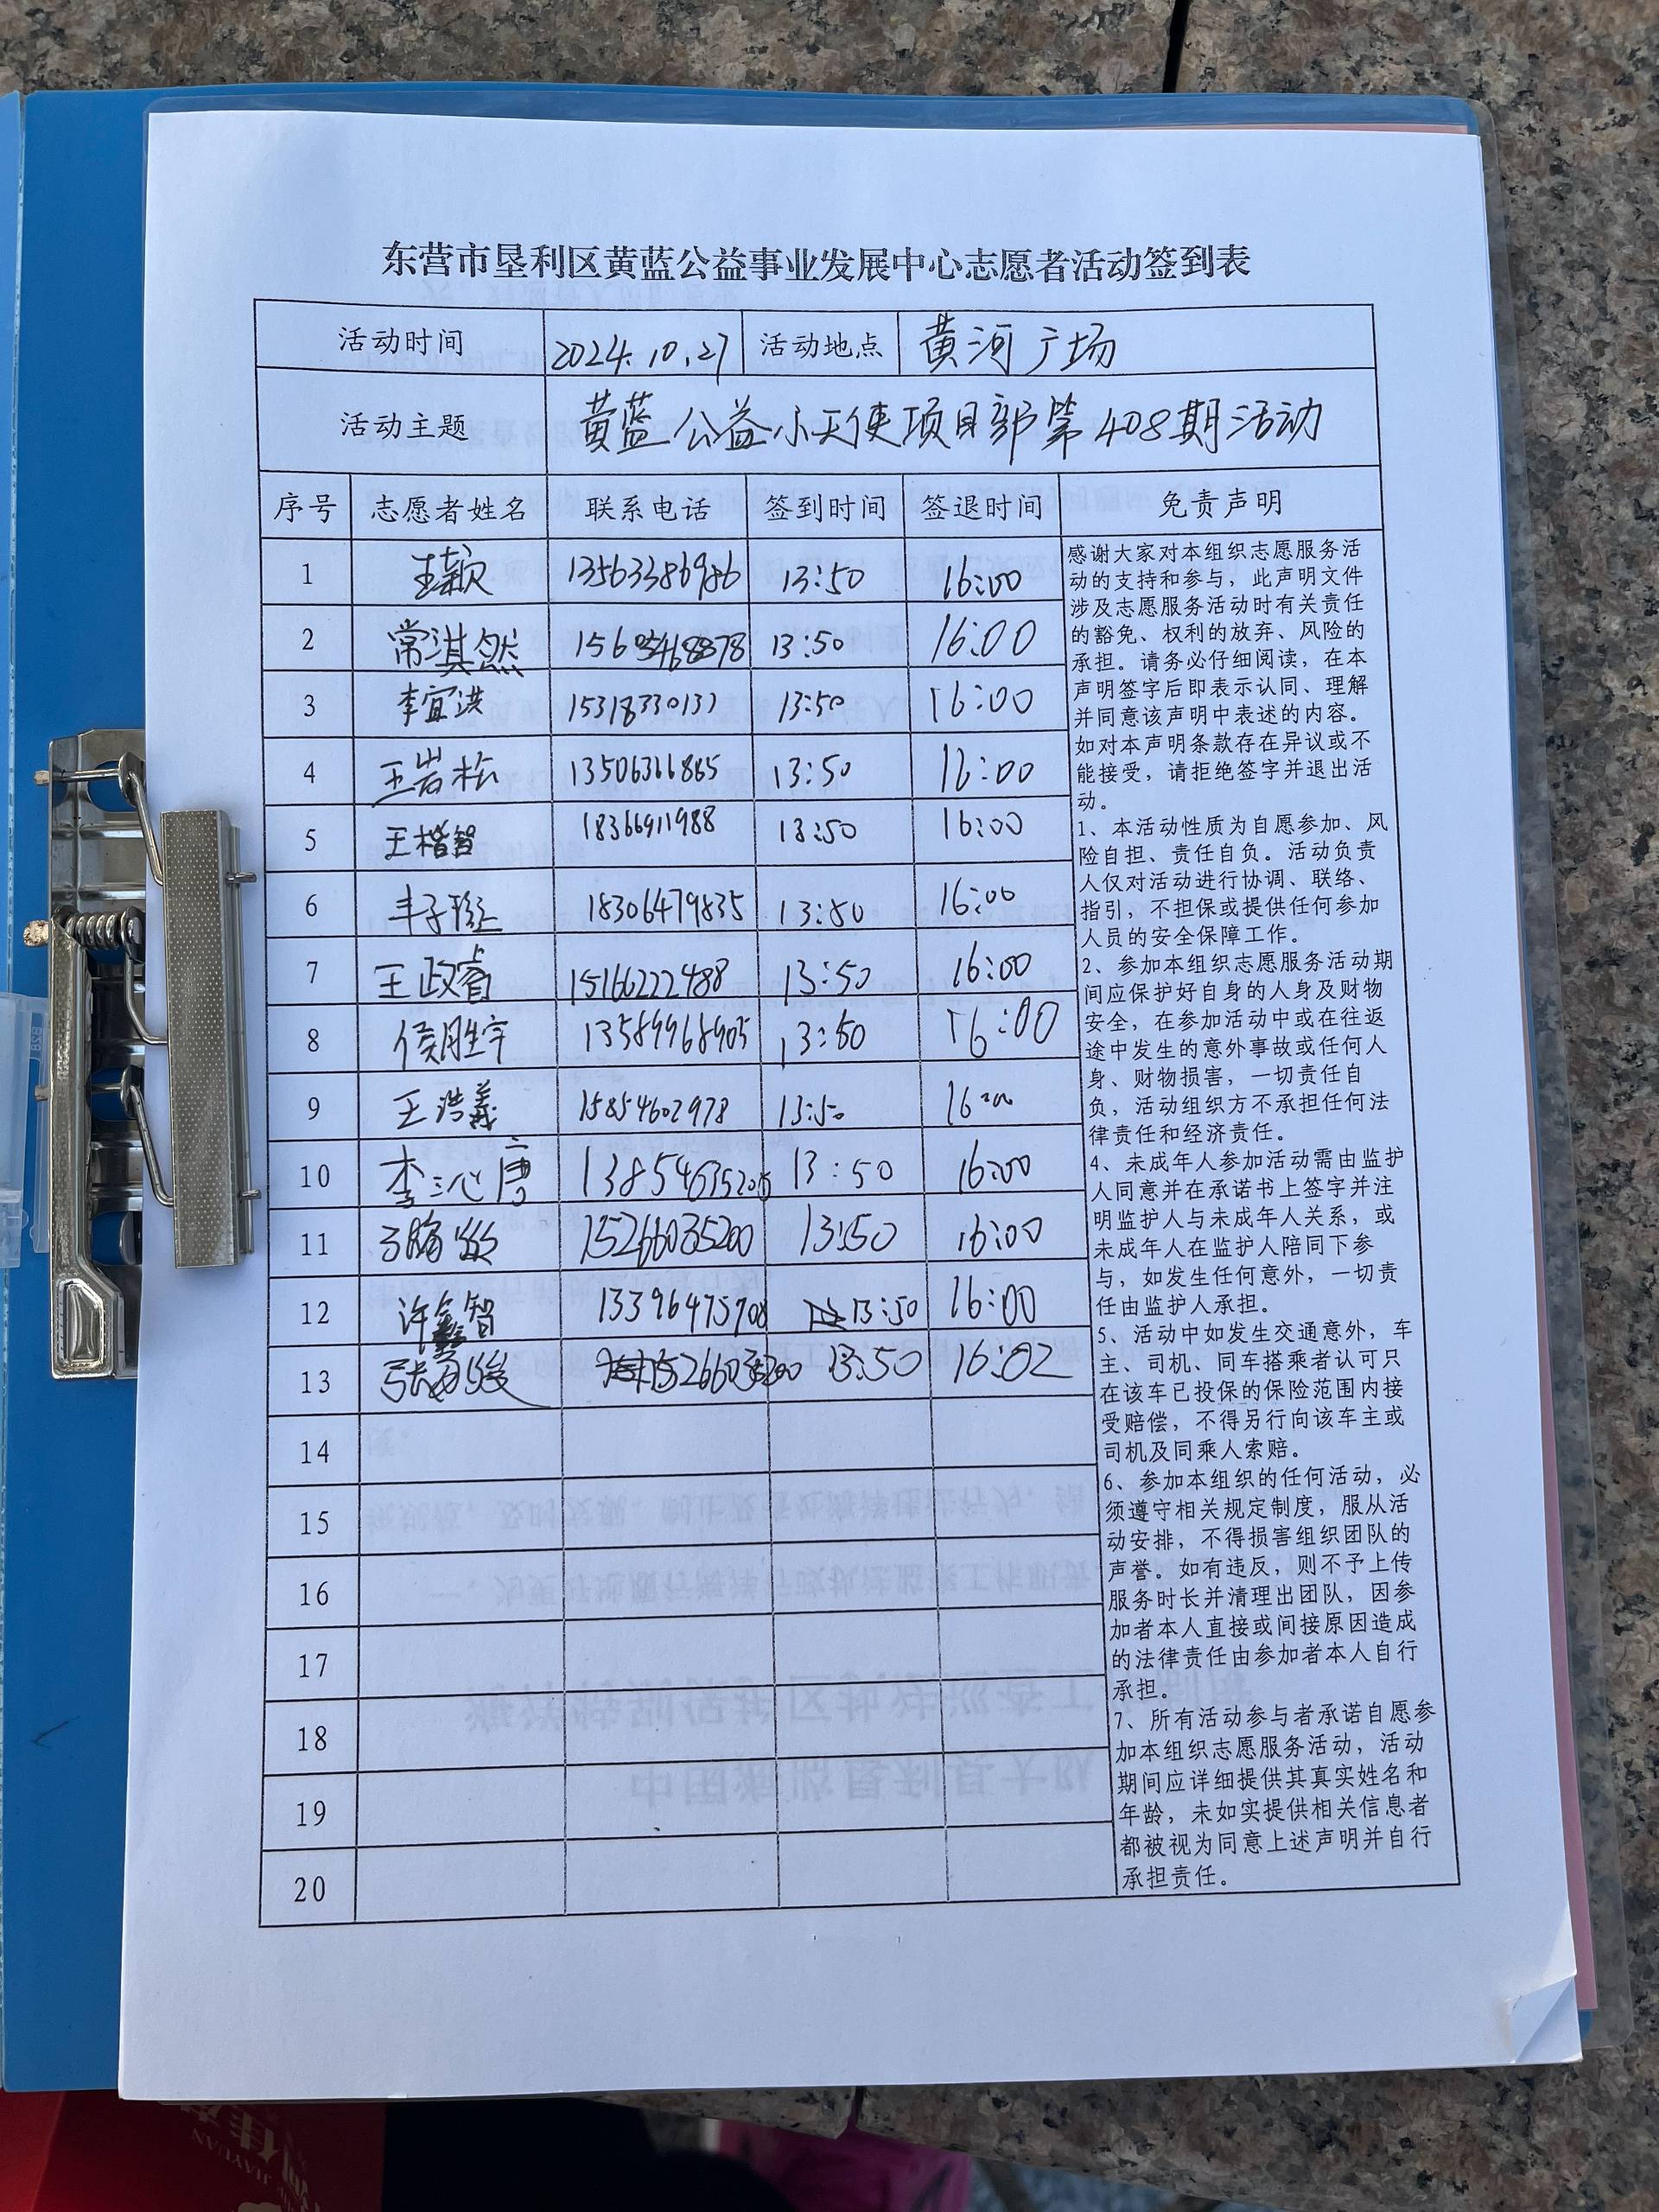 东营市垦利区黄蓝公益事业发展中心志愿者活动签到表
活动时间 2024.10.27 活动地点 黄河广场
活动主题 黄蓝公益小天使项目部第408期活动
序号 志愿者姓名 联系电话 签到时间 签退时间 免责声明
1 王颖 13563386986 13:50 16:00
2 常淇然 13:50 16:00
3 李宜洪 15318330137 13:50 16:00
4 王岩松 13506366865 13:50 16:00
5 王楷智 18366911988 13:50 16:00
6 丰子 18306479835 13:50 16:00
7 王政睿 15166222488 13:50 16:00
8 侯胜宇 13589968905 13:50 16:00
9 王浩義 15854602978 13:50 16:00
10 李沁唐 13:50 16:00
11 15266035200 13:50 16:00
12 许鑫智 13396475908 13:50 16:00
13 13:50 16:02
14
15
16
17
18
19
20
感谢大家对本组织志愿服务活
动的支持和参与，此声明文件
涉及志愿服务活动时有关责任
的豁免、权利的放弃、风险的
承担。请务必仔细阅读，在本
声明签字后即表示认同、理解
并同意该声明中表述的内容。
如对本声明条款存在异议或不
能接受，请拒绝签字并退出活
动。
1、本活动性质为自愿参加、风
险自担、责任自负。活动负责
人仅对活动进行协调、联络、
指引，不担保或提供任何参加
人员的安全保障工作。
2、参加本组织志愿服务活动期
间应保护好自身的人身及财物
安全，在参加活动中或在往返
途中发生的意外事故或任何人
身、财物损害，一切责任自
负，活动组织方不承担任何法
律责任和经济责任。
4、未成年人参加活动需由监护
人同意并在承诺书上签字并注
明监护人与未成年人关系，或
未成年人在监护人陪同下参
与，如发生任何意外，一切责
任由监护人承担。
5、活动中如发生交通意外，车
主、司机、同车搭乘者认可只
在该车已投保的保险范围内接
受赔偿，不得另行向该车主或
司机及同乘人索赔。
6、参加本组织的任何活动，必
须遵守相关规定制度，服从活
动安排，不得损害组织团队的
声誉。如有违反，则不予上传
服务时长并清理出团队，因参
加者本人直接或间接原因造成
的法律责任由参加者本人自行
承担。
7、所有活动参与者承诺自愿参
加本组织志愿服务活动，活动
期间应详细提供其真实姓名和
年龄，未如实提供相关信息者
都被视为同意上述声明并自行
承担责任。